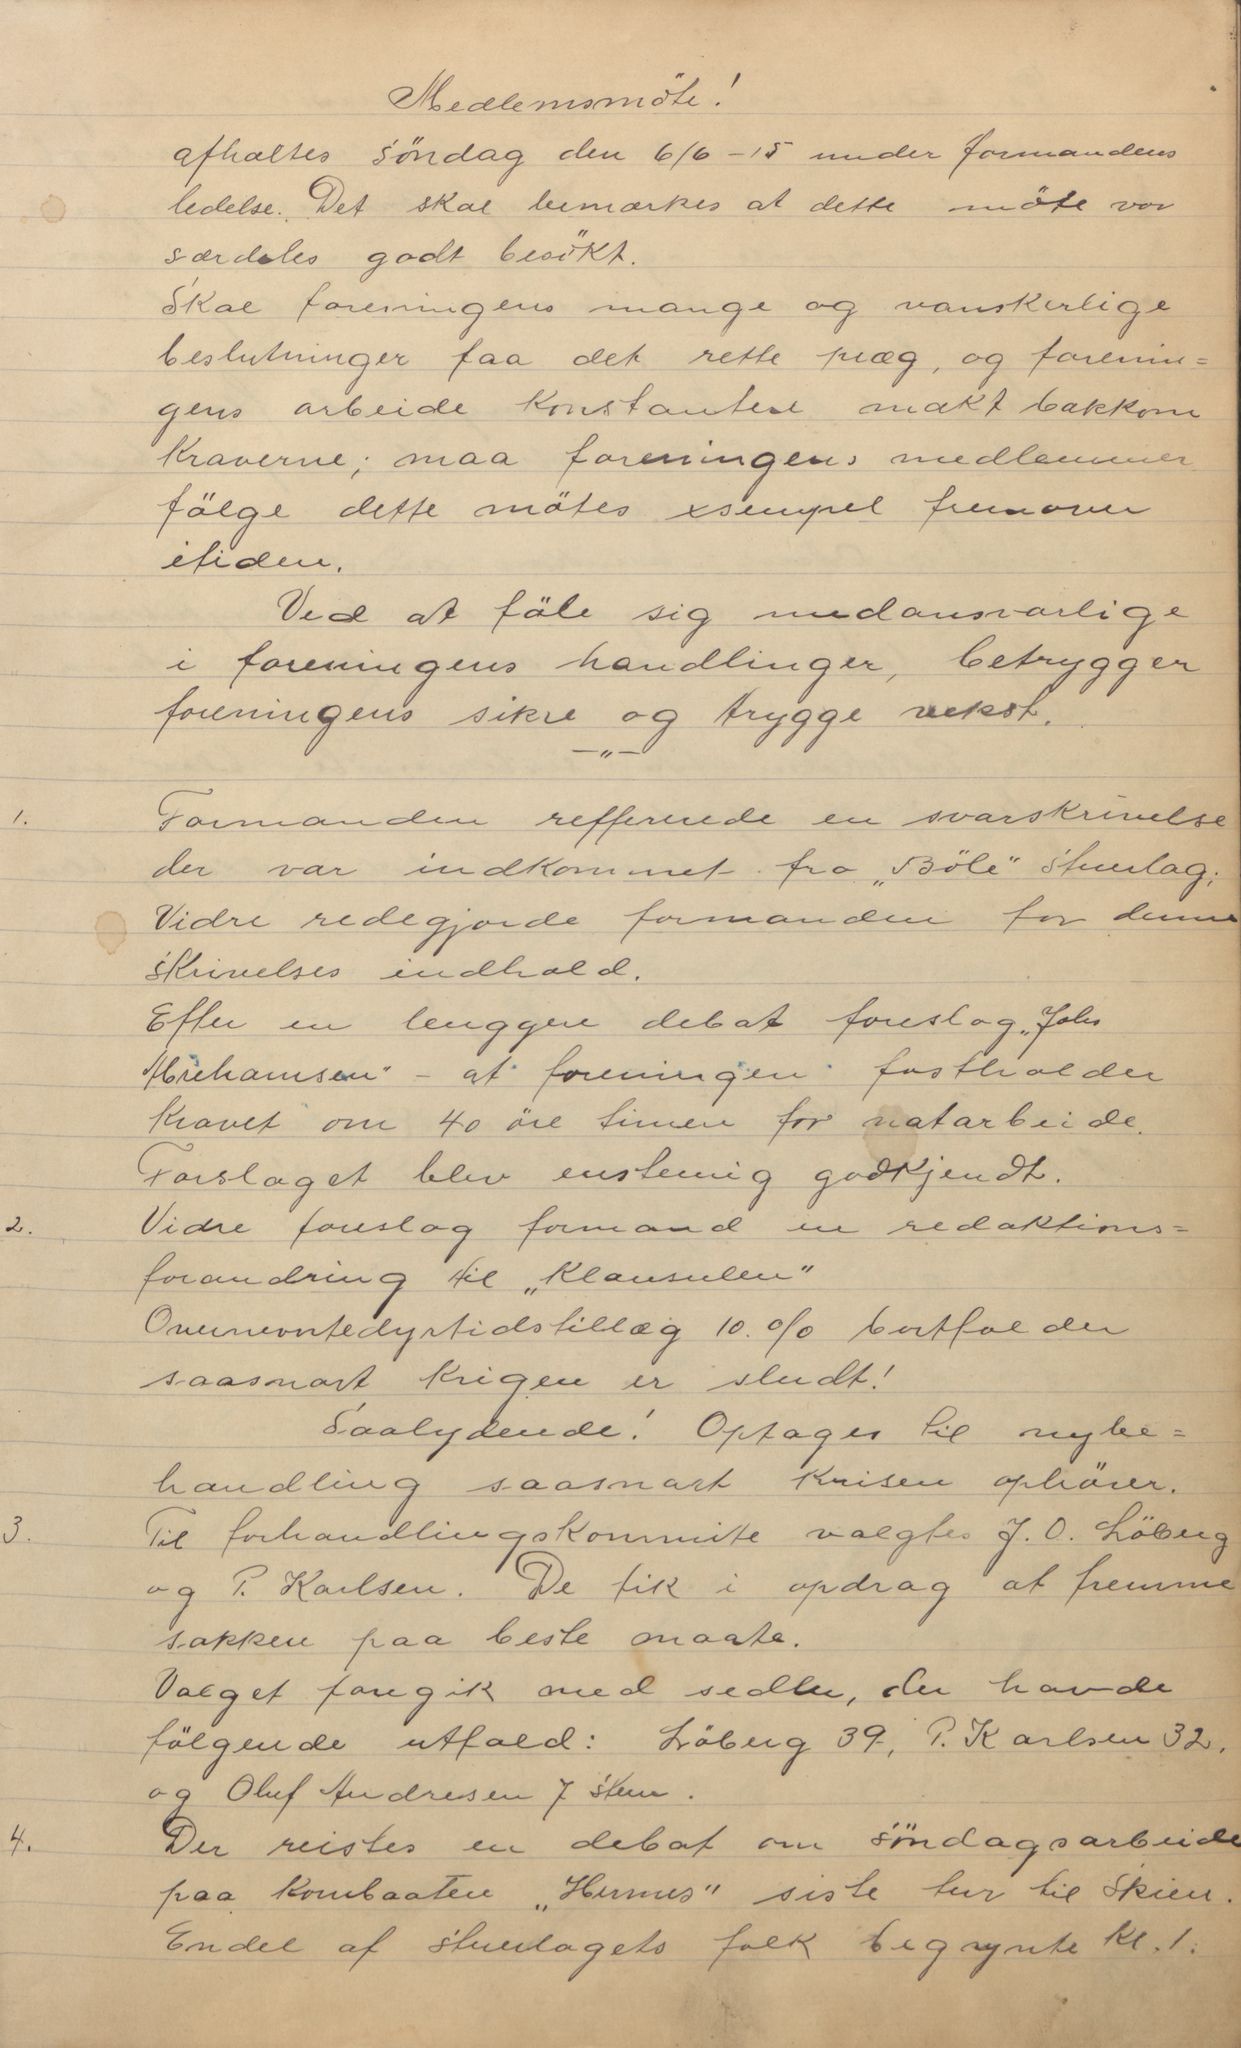 Medlemsmöte!
afholtes söndag den 6/6-15 under formandens
ledelse. Det skal bemærkes at dette möte var
særdeles godt besökt.
Skal foreningens mange og vanskerlige
beslutninger faa det rette præg, og forenin=
gens arbeide konstantere makt bakkom
kraverne; maa foreningens medlemmer
fölge dette mötes exsempel fremover
itiden.
Ved at föle sig medansvarlige
i foreningens handlinger, betrygger
foreningens sikre og trygge vekst.
—"—
1. Formanden refferende en svarskrivelse
der var indkommet fra „Böle" Stuerlag;
Vidre redegjorde formanden for denne
skrivelses indhold.
Efter en lenggere debat foreslog „Johs
Abrehamsen" - at foreningen fastholder
kravet om 40 öre timen for natarbeide.
Forslaget blev enstemig godkjendt.
2. Vidre foreslog formand en redaktions=
forandring til „Klausulen"
Overnevntedyrtidstillæg 10.o/o bortfalder
saasnart krigen er sludt!
Saalydende! Optages til nybe=
handling saasnart krisen ophörer.
3. Til forhandlingskommite valgtes J. O. Löberg
og P. Karlsen. De fik i opdrag at fremme
sakken paa beste maate.
Valget foregik med sedler, der havde
fölgende utfald: Löberg 39, P. Karlsen 32.
og Oluf Andresen 7 stem.
4. Der reistes en debat om söndagsarbeide
paa kornbaaten „Hermes" siste tur til Skien.
Endel af stuerlagets folk begynte Kl. 1.